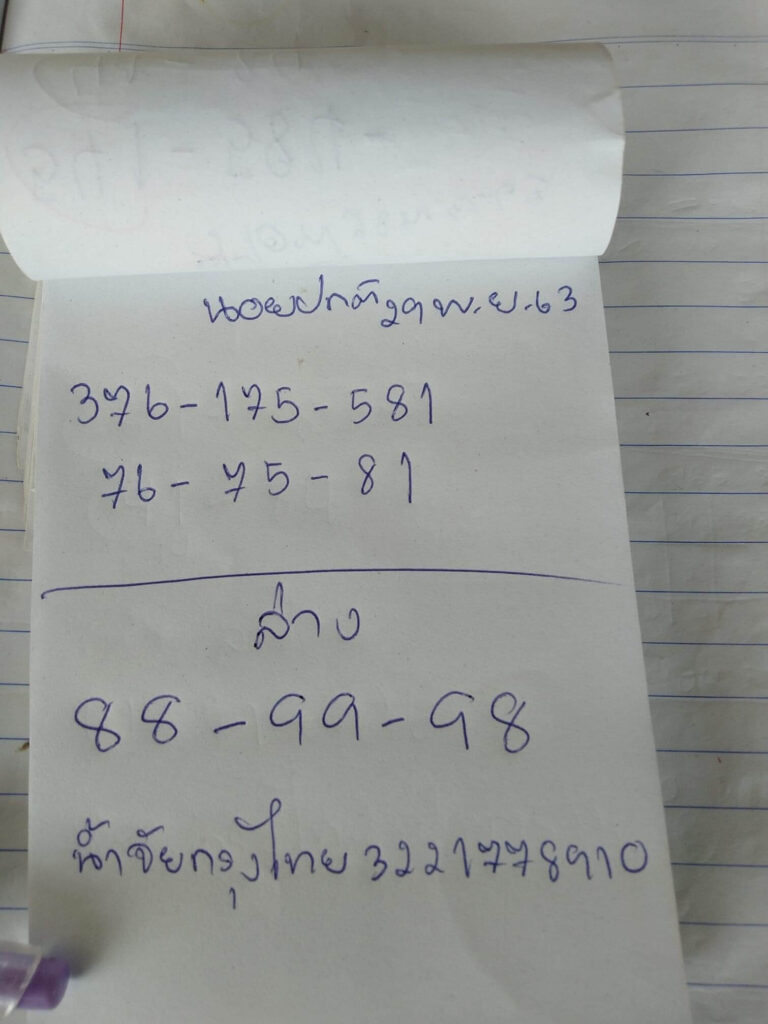 นอยปกติ 29 พ.ย.63
376-175-581
76-75-81
ล่าง
88-99-98
น้ำจัยกรุงไทย 3221778910